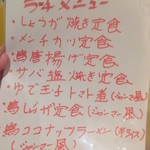 ランチメニュー
・しょうが焼き定食
・メンチカツ定食
・鶏唐揚げ定食
・サバ塩焼き定食
・ゆで玉子トマト煮(ジャンマー風)
・鶏しょうが定食(ジャンマー風)
・鶏ココナッツラーメン(半ライス)
(ジャンマー風)